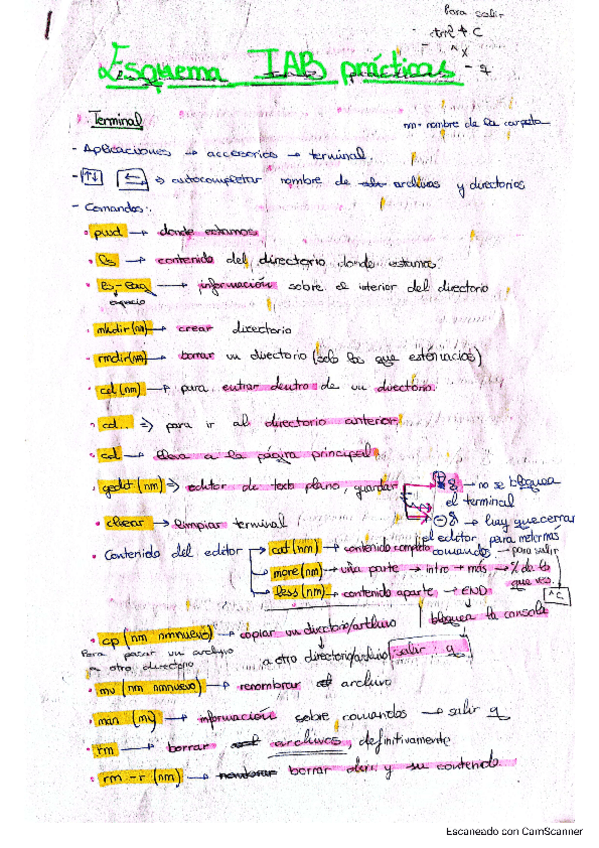 1
Para salir
- ctrl + C
- ^X
- q
Esquema IAB prácticas
Terminal
nm = nombre de la carpeta
- Aplicaciones → accesorios → terminal.
- ↑↓ ⇆ ⇒ autocompletar nombre de archivos y directorios
- Comandos:
• pwd → donde estamos
• ls → contenido del directorio donde estamos
• ls - → información sobre el interior del directorio
espacio
• mkdir (nm) → crear directorio
• rmdir (nm) → borrar un directorio (solo los que estén vacíos)
• cd (nm) → para entrar dentro de un directorio.
• cd.. ⇒ para ir al directorio anterior
• cd → lleva a la página principal
• gedit (nm) ⇒ editor de texto plano, guardar
⊕ & → no se bloquea
el terminal
⊖ & → hay que cerrar
el editor para meter más
comandos
• clear → limpiar terminal
• Contenido del editor
→ cat (nm) → contenido completo
→ para salir
→ more (nm) → una parte → intro → más → % de lo
que ves.
^C
→ less (nm) → contenido aparte → END
bloquea la consola
salir: q
• cp (nm nmnuevo) → copiar un directorio/archivo
a otro directorio/archivo
Para pasar un archivo
a otro directorio
• mv (nm nmnuevo) → renombrar archivo
• man → información sobre comandos → salir q
• rm → borrar archivos definitivamente
• rm -r (nm) → borrar dir. y su contenido
Escaneado con CamScanner